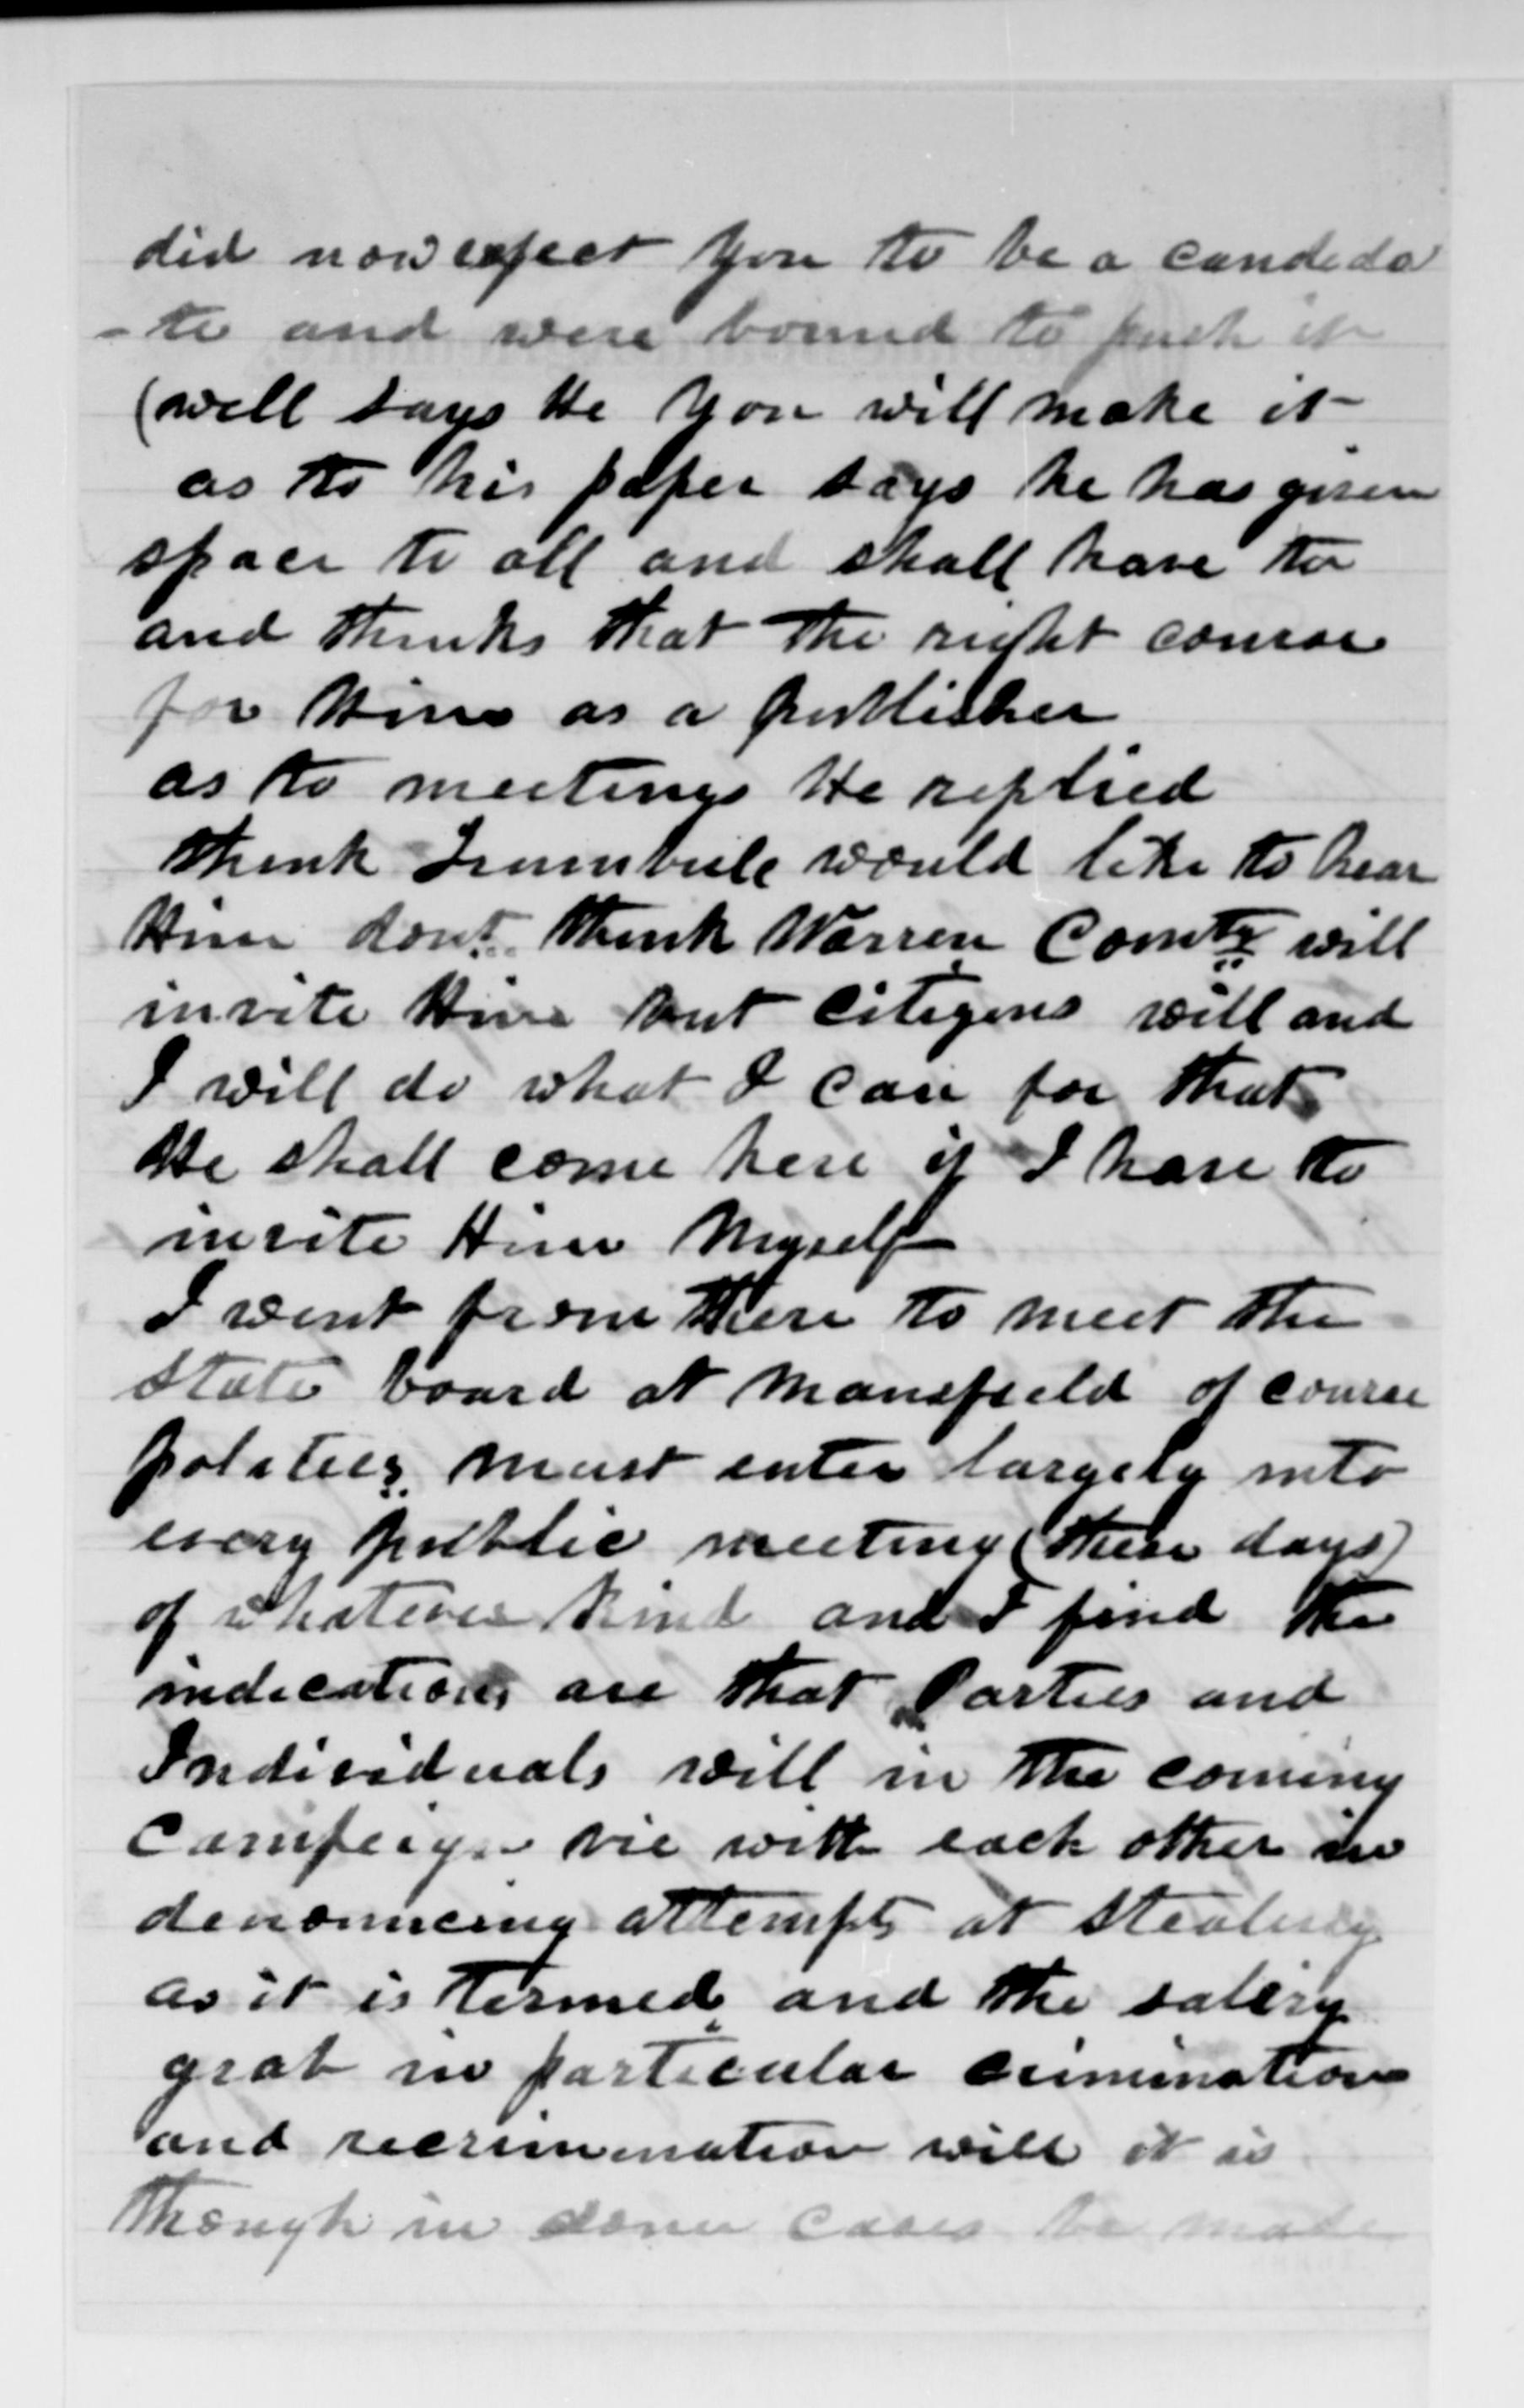 did now expect you to be a candida
-te and were bound to push it
(well says He you will make it
as to his paper says he has given
space to all and shall have to
and thinks that the right course
for Him as a publisher
as to meetings He replied
think Trumbull would like to hear
Him dont think Warren County will
invite Him but Citizens will and
I will do what I can for that
He shall come here if I have to
invite Him Myself
I went from there to meet the
State board at Mansfield of course
politics must enter largely into
every public meeting (these days)
of whatever kind and I find the
indications are that Parties and
Individuals will in the coming
Campeign vie with each other in
denouncing attempts at Stealing
as it is termed and the salery
grab in particular crimination
and recrimination will it is
though in some cases be made